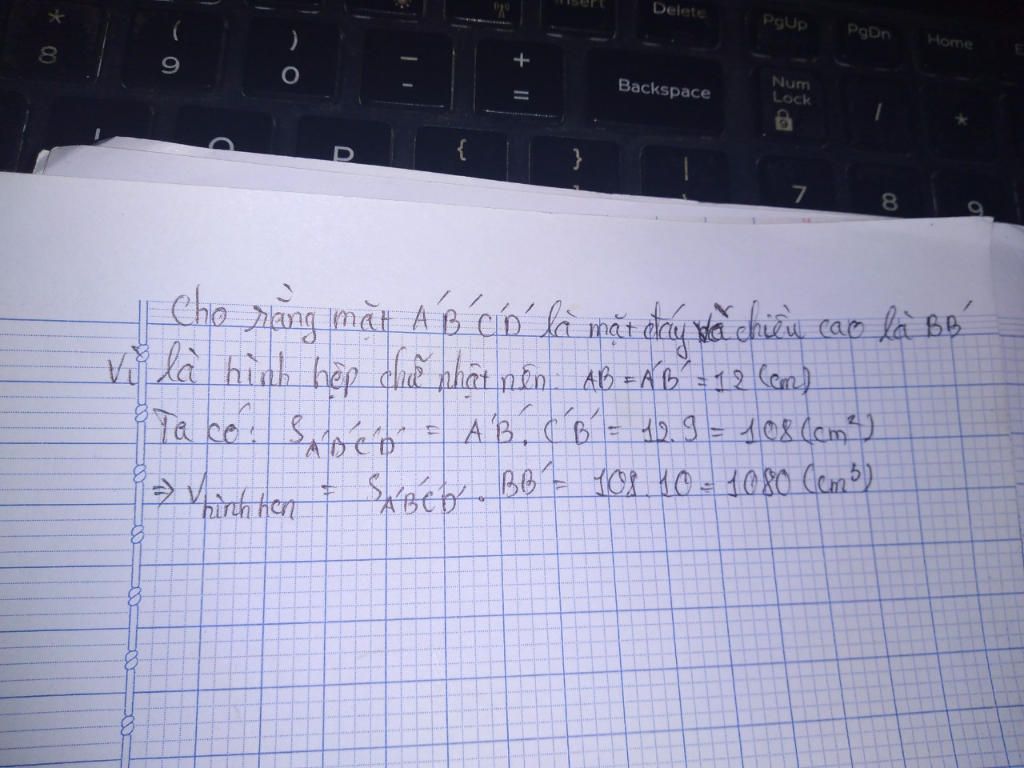 Insert Delete PgUp PgDn Home
* 8 ( 9 ) 0 _ - + = Backspace Num Lock / *
O P { } | 7 8 9
Cho rằng mặt A'B'C'D' là mặt đáy và chiều cao là BB'
Vì là hình hộp chữ nhật nên AB = A'B' = 12 (cm)
Ta có: S A'B'C'D' = A'B'. C'B' = 12.9 = 108 (cm²)
⇒ V hình hộp = S A'B'C'D' . BB' = 108.10 = 1080 (cm³)